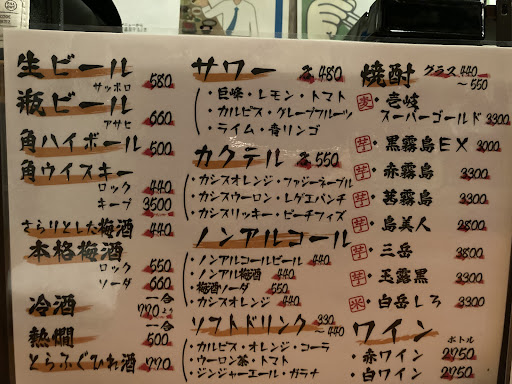 生ビール
サッポロ 580
瓶ビール
アサヒ 660
角ハイボール 500
角ウイスキー
ロック 440
キープ 3500
さらりとした梅酒 440
本格梅酒
ロック 550
ソーダ 660
冷酒 一合 770より
熱燗 一合 500
とらふぐひれ酒 770
サワー 各480
・巨峰・レモン・トマト
・カルピス・グレープフルーツ
・ライム・青リンゴ
カクテル 各550
・カシスオレンジ・ファジーネーブル
・カシスウーロン・レゲエパンチ
・カシスリッキー・ピーチフィズ
ノンアルコール
・ノンアルコールビール 440
・ノンアル梅酒 440
・梅酒ソーダ 550
・カシスオレンジ 440
ソフトドリンク 330〜440
・カルピス・オレンジ・コーラ
・ウーロン茶・トマト
・ジンジャーエール・ガラナ
焼酎 グラス 440〜550
麦・壱岐
スーパーゴールド 3300
芋・黒霧島EX 3000
芋・赤霧島 3300
芋・茜霧島 3300
芋・島美人 2800
芋・三岳 3800
芋・玉露黒 3300
米・白岳しろ 3300
ワイン ボトル
・赤ワイン 2750
・白ワイン 2750